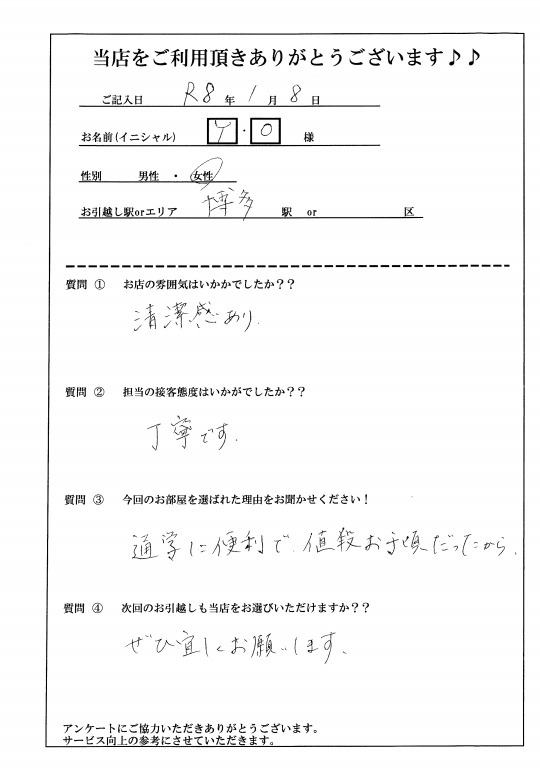 当店をご利用頂きありがとうございます♪♪
ご記入日 R8年 1月 8日
お名前(イニシャル) Y・O 様
性別 男性 ・ 女性
お引越し駅orエリア 博多 駅 or 区
質問 ① お店の雰囲気はいかかでしたか??
清潔感あり.
質問 ② 担当の接客態度はいかがでしたか??
丁寧です.
質問 ③ 今回のお部屋を選ばれた理由をお聞かせください!
通学に便利で、値段お手頃だったから.
質問 ④ 次回のお引越しも当店をお選びいただけますか??
ぜひ宜しくお願いします.
アンケートにご協力いただきありがとうございます。
サービス向上の参考にさせていただきます。